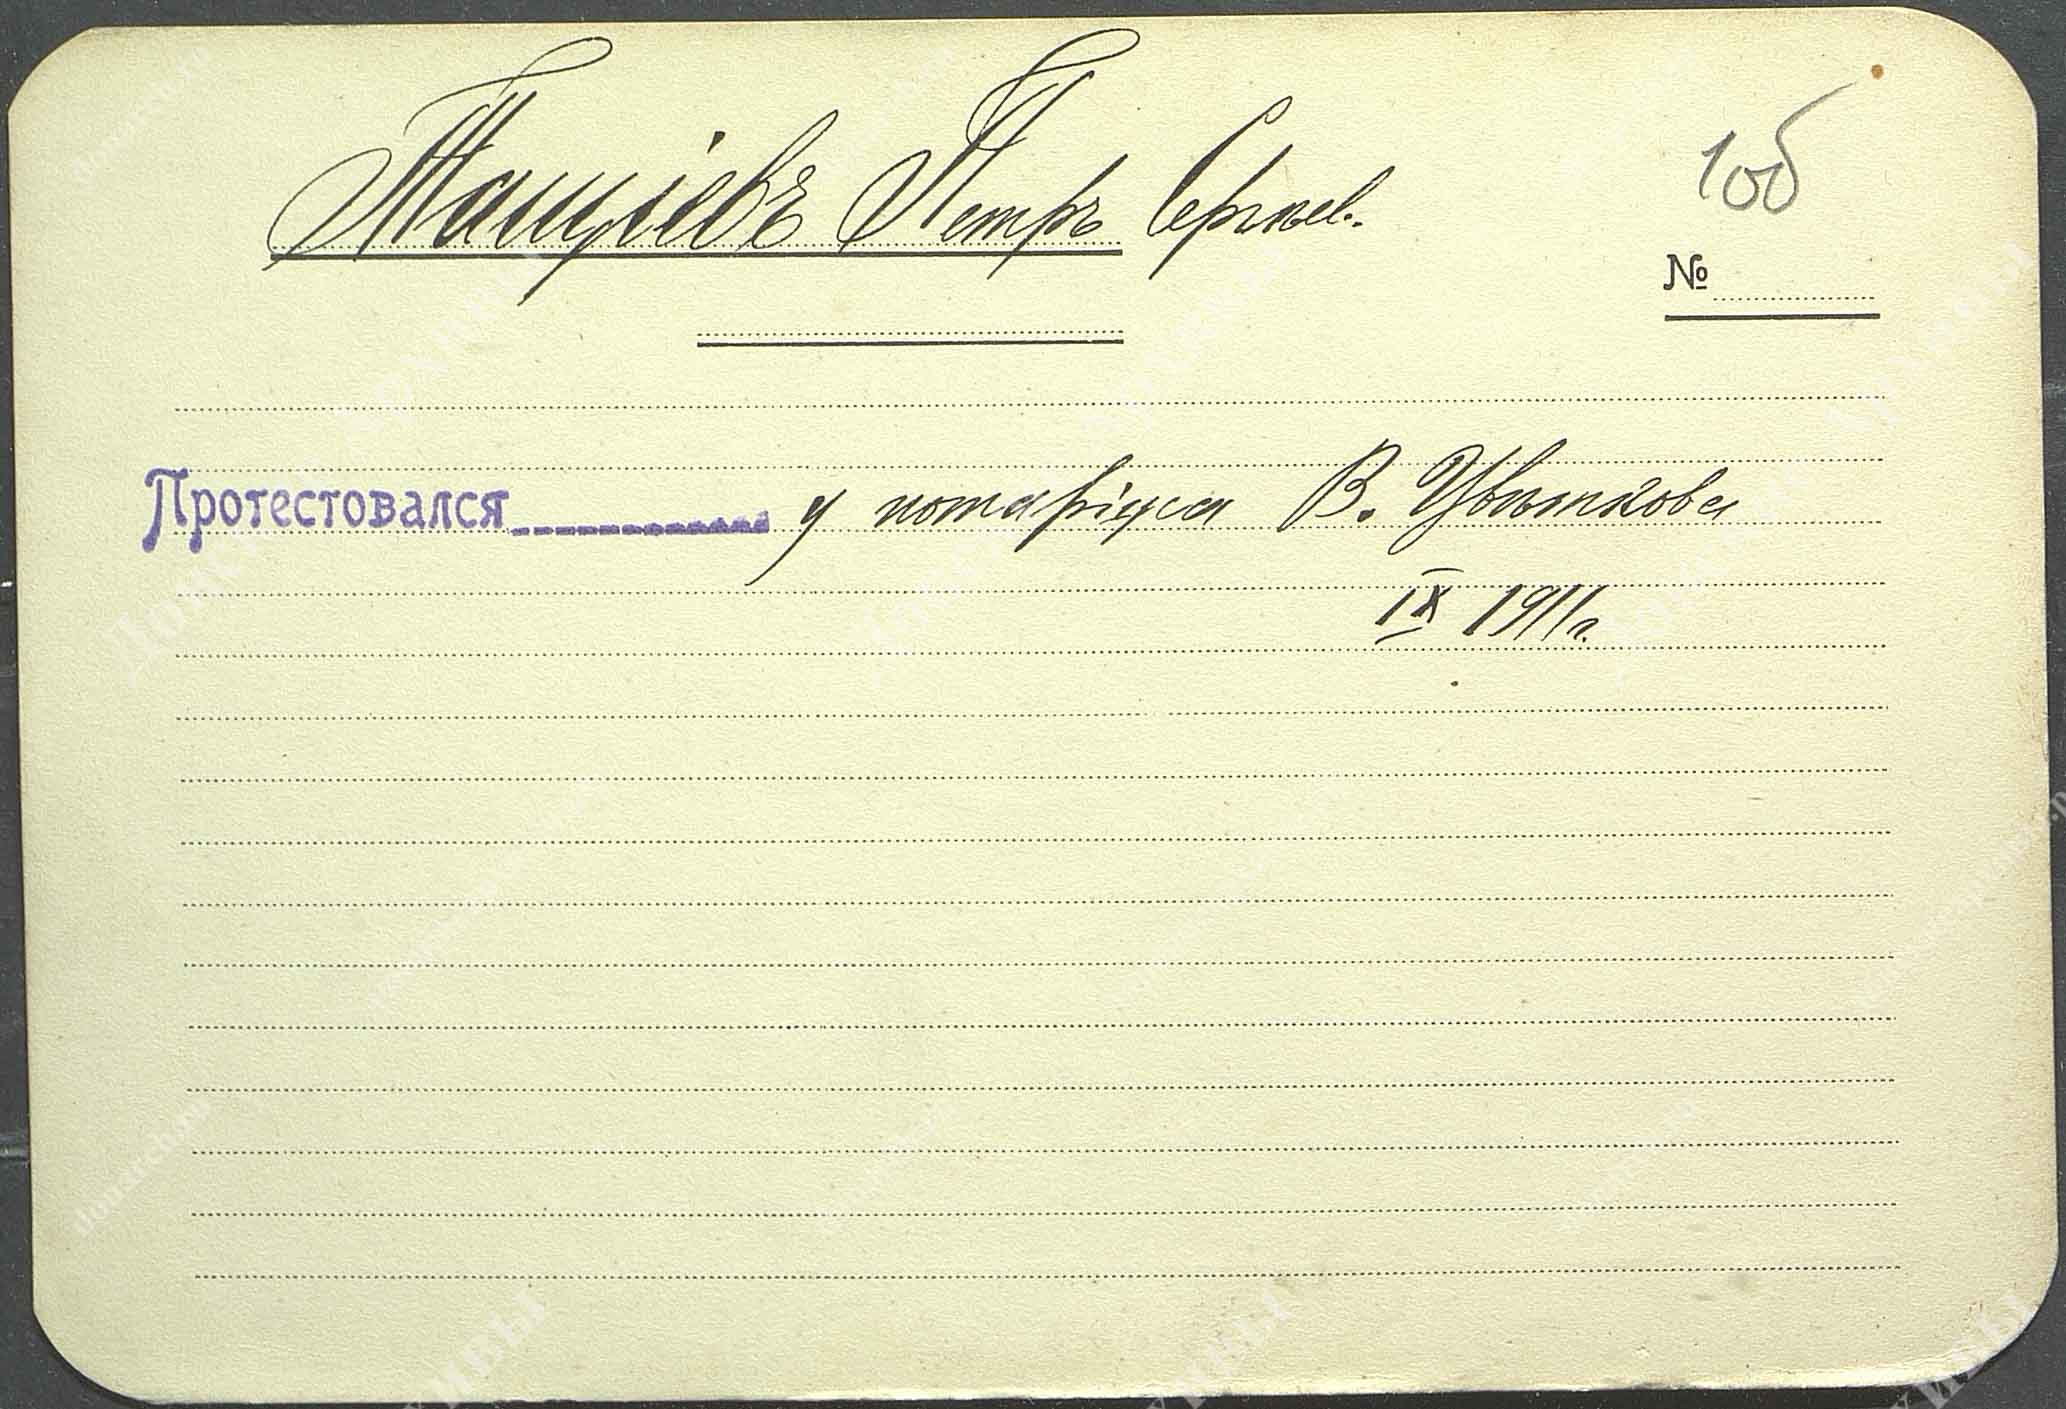 Ташліевъ Петръ Сергѣев.
10б
№
Протестовался у нотаріуса В. Цвѣткова
IX 1911 г.